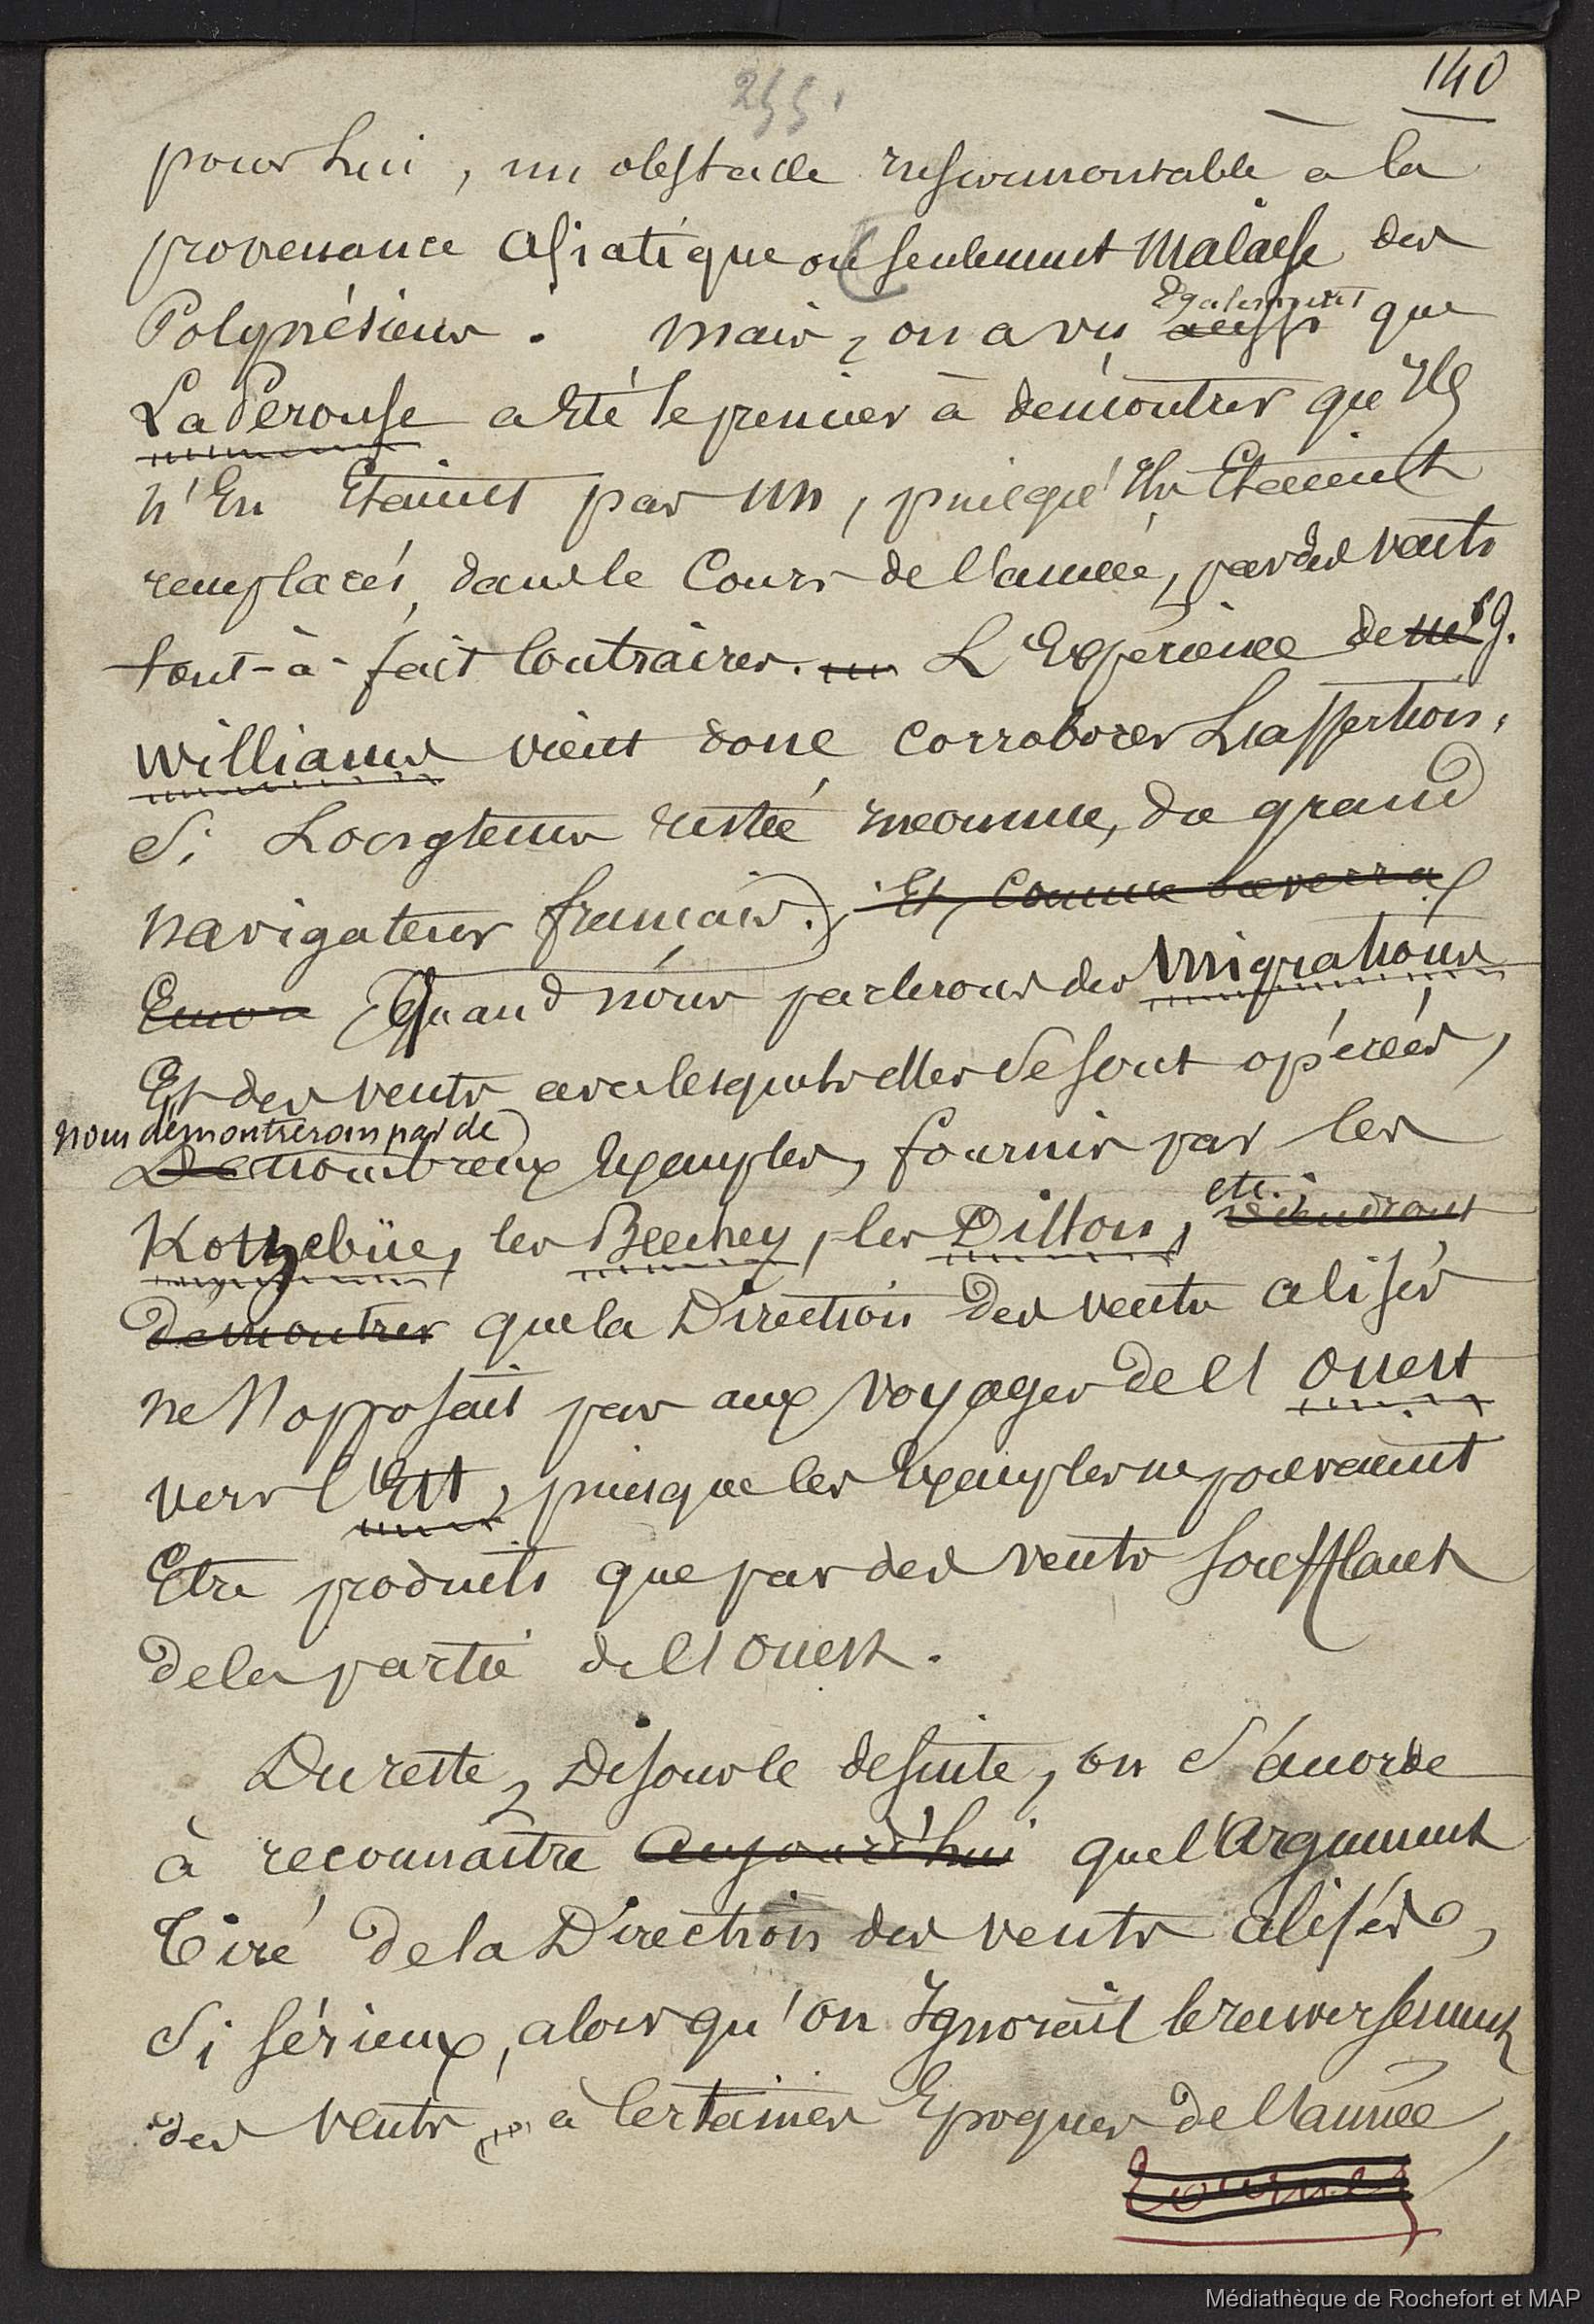 140
255.
pour lui, un obstacle insurmontable à la
provenance asiatique ou seulement Malaise des
Polynésiens. Mais, on a vu aussi également que
La Pérouse a été le premier à démontrer qu'ils
n'en étaient pas un, puisqu'ils étaient
remplacés, dans le cours de l'année, par des vents
tout-à-fait contraires. L'Expérience de Mr J.
Williams vient donc corroborer l'assertion,
si longtems restée inconnue, du grand
navigateur français. Et, comme on verra
Quand nous parlerons des Migrations
Et des vents avec lesquels elles se sont opérées,
nous démontrerons par de
De nombreux Exemples, fournis par les
Kotzebüe, les Beechey, les Dillon, etc. viendront
démontrer que la Direction des vents alisés
ne s'opposait pas aux voyages de l'Ouest
vers l'Est, puisque les Exemples ne pouvaient
Être produits que par des vents soufflant
de la partie de l'Ouest.
Du reste, disons le de suite, on s'accorde
à reconnaître aujourd'hui que l'argument
Tiré de la Direction des vents alisés,
si sérieux, alors qu'on Ignorait le renversement
des vents à certaines Epoques de l'année,
tournez
Médiathèque de Rochefort et MAP